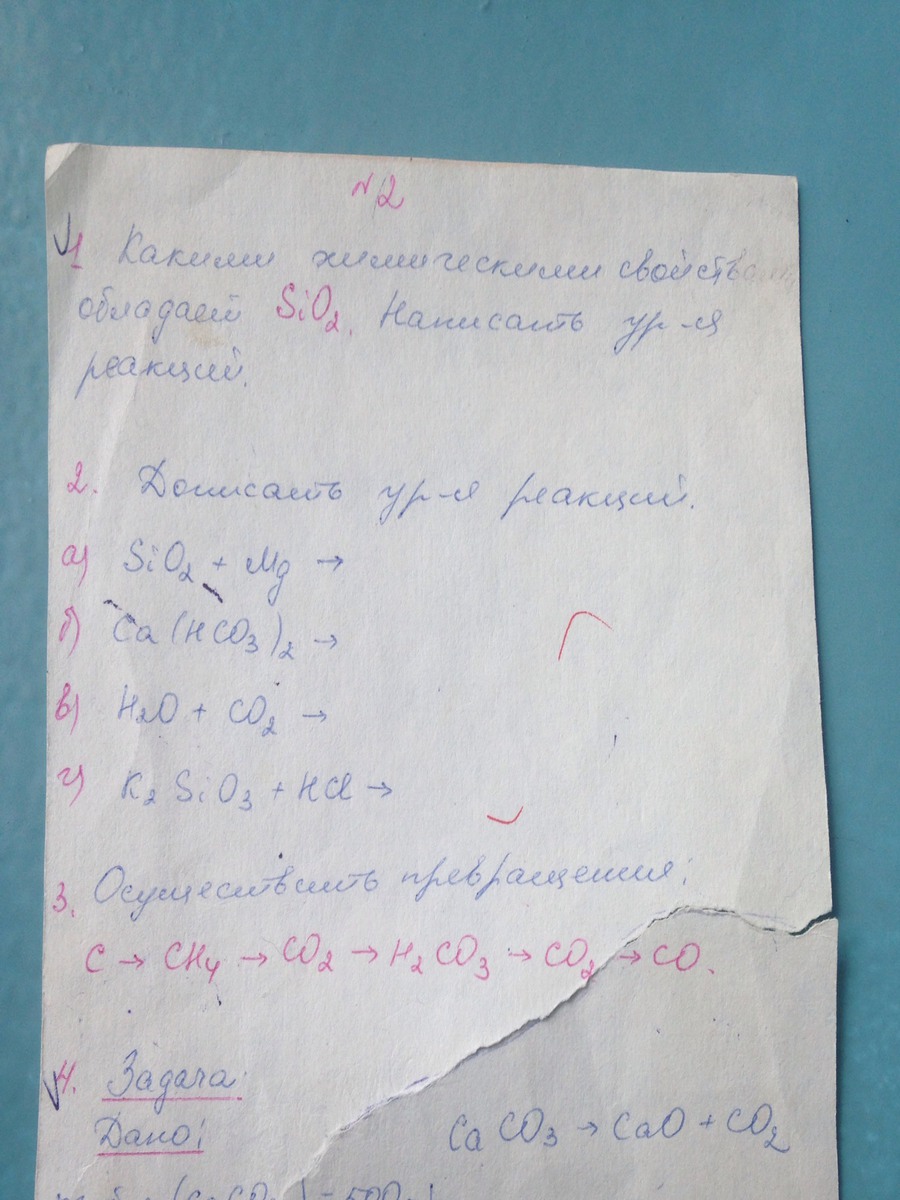 №2
1 Какими химическими свойствами
обладает SiO2. Написать ур-я
реакций.
2. Дописать ур-я реакций.
а) SiO2 + Mg →
б) Ca(HCO3)2 →
в) H2O + CO2 →
г) K2SiO3 + HCl →
3. Осуществить превращения:
C → CH4 → CO2 → H2CO3 → CO2 → CO.
4. Задача:
Дано: CaCO3 → CaO + CO2